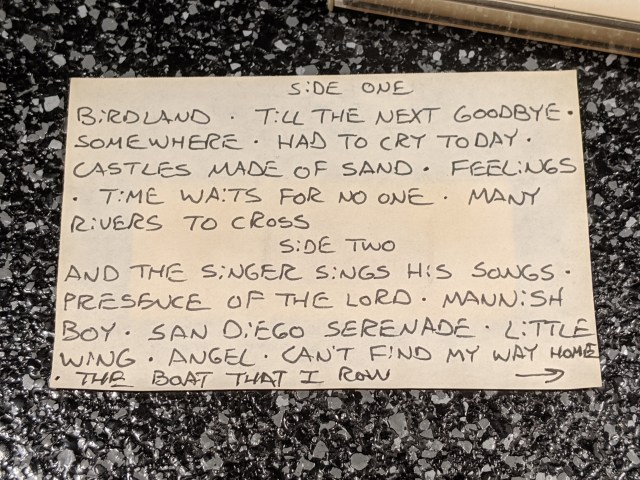 SiDE ONE
BiRDLAND · TiLL THE NEXT GOODBYE ·
SOMEWHERE · HAD TO CRY TODAY ·
CASTLES MADE OF SAND · FEELiNGS
· TiME WAiTS FOR NO ONE · MANY
RiVERS TO CROSS
SiDE TWO
AND THE SiNGER SiNGS HiS SONGS ·
PRESENCE OF THE LORD · MANNiSH
BOY · SAN DiEGO SERENADE · LiTTLE
WiNG · ANGEL · CAN'T FiND MY WAY HOME
· THE BOAT THAT I ROW →